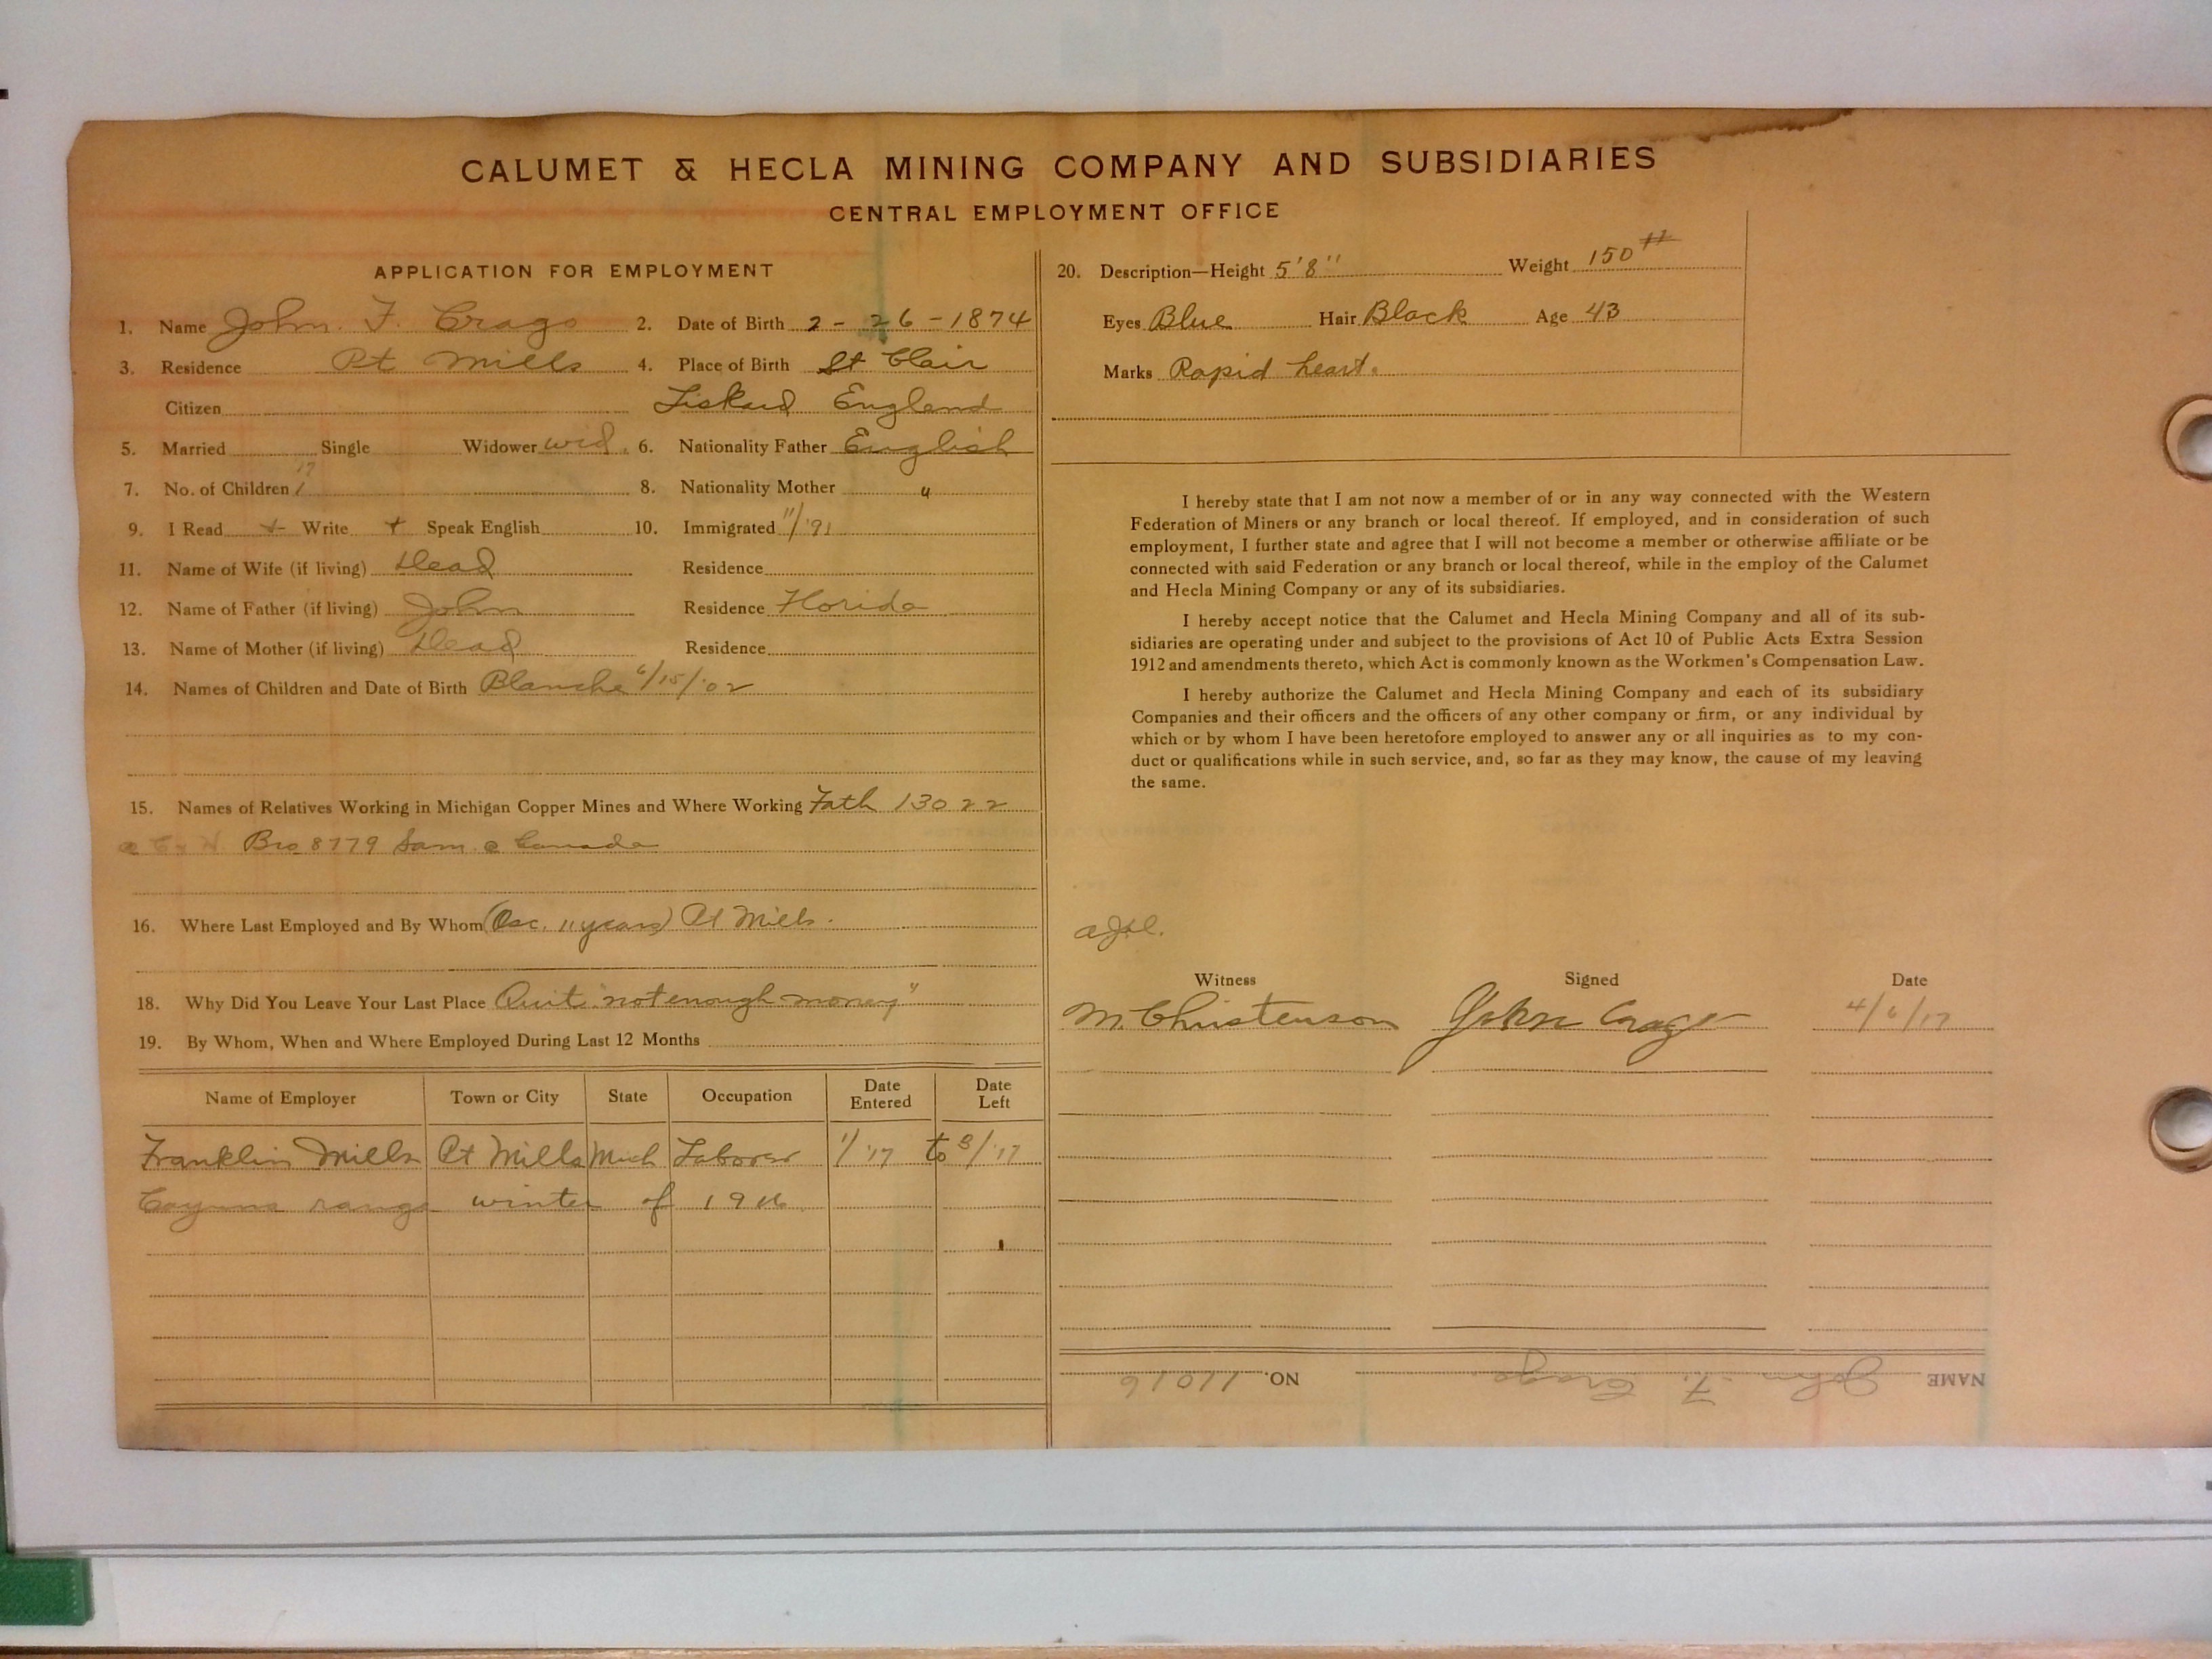 CALUMET & HECLA MINING COMPANY AND SUBSIDIARIES
CENTRAL EMPLOYMENT OFFICE
APPLICATION FOR EMPLOYMENT
1. Name John. F. Crago 2. Date of Birth 2 - 26 - 1874
3. Residence Pt Mills 4. Place of Birth St Clair
Citizen Liskard England
5. Married Single Widower wid. 6. Nationality Father English
17
7. No. of Children 1 8. Nationality Mother "
9. I Read + Write + Speak English 10. Immigrated 11/'91
11. Name of Wife (if living) Dead Residence
12. Name of Father (if living) John Residence Florida
13. Name of Mother (if living) Dead Residence
14. Names of Children and Date of Birth Blanche 6/15/'02
15. Names of Relatives Working in Michigan Copper Mines and Where Working Fath 13022
@ C & H. Bro 8779 Sam @ Canada
16. Where Last Employed and By Whom (Osc. 11 years) Pt Mills.
18. Why Did You Leave Your Last Place Quit "not enough money"
19. By Whom, When and Where Employed During Last 12 Months
Name of Employer Town or City State Occupation Date Entered Date Left
Franklin Mills Pt Mills Mich Laborer 1/'17 to 3/'17
Cayuna range winter of 1916
20. Description—Height 5'8" Weight 150#
Eyes Blue Hair Black Age 43
Marks Rapid heart.
I hereby state that I am not now a member of or in any way connected with the Western
Federation of Miners or any branch or local thereof. If employed, and in consideration of such
employment, I further state and agree that I will not become a member or otherwise affiliate or be
connected with said Federation or any branch or local thereof, while in the employ of the Calumet
and Hecla Mining Company or any of its subsidiaries.
I hereby accept notice that the Calumet and Hecla Mining Company and all of its sub-
sidiaries are operating under and subject to the provisions of Act 10 of Public Acts Extra Session
1912 and amendments thereto, which Act is commonly known as the Workmen's Compensation Law.
I hereby authorize the Calumet and Hecla Mining Company and each of its subsidiary
Companies and their officers and the officers of any other company or firm, or any individual by
which or by whom I have been heretofore employed to answer any or all inquiries as to my con-
duct or qualifications while in such service, and, so far as they may know, the cause of my leaving
the same.
Witness Signed Date
M. Christenson John Crago 4/6/17
NAME John F. Crago. NO. 11016